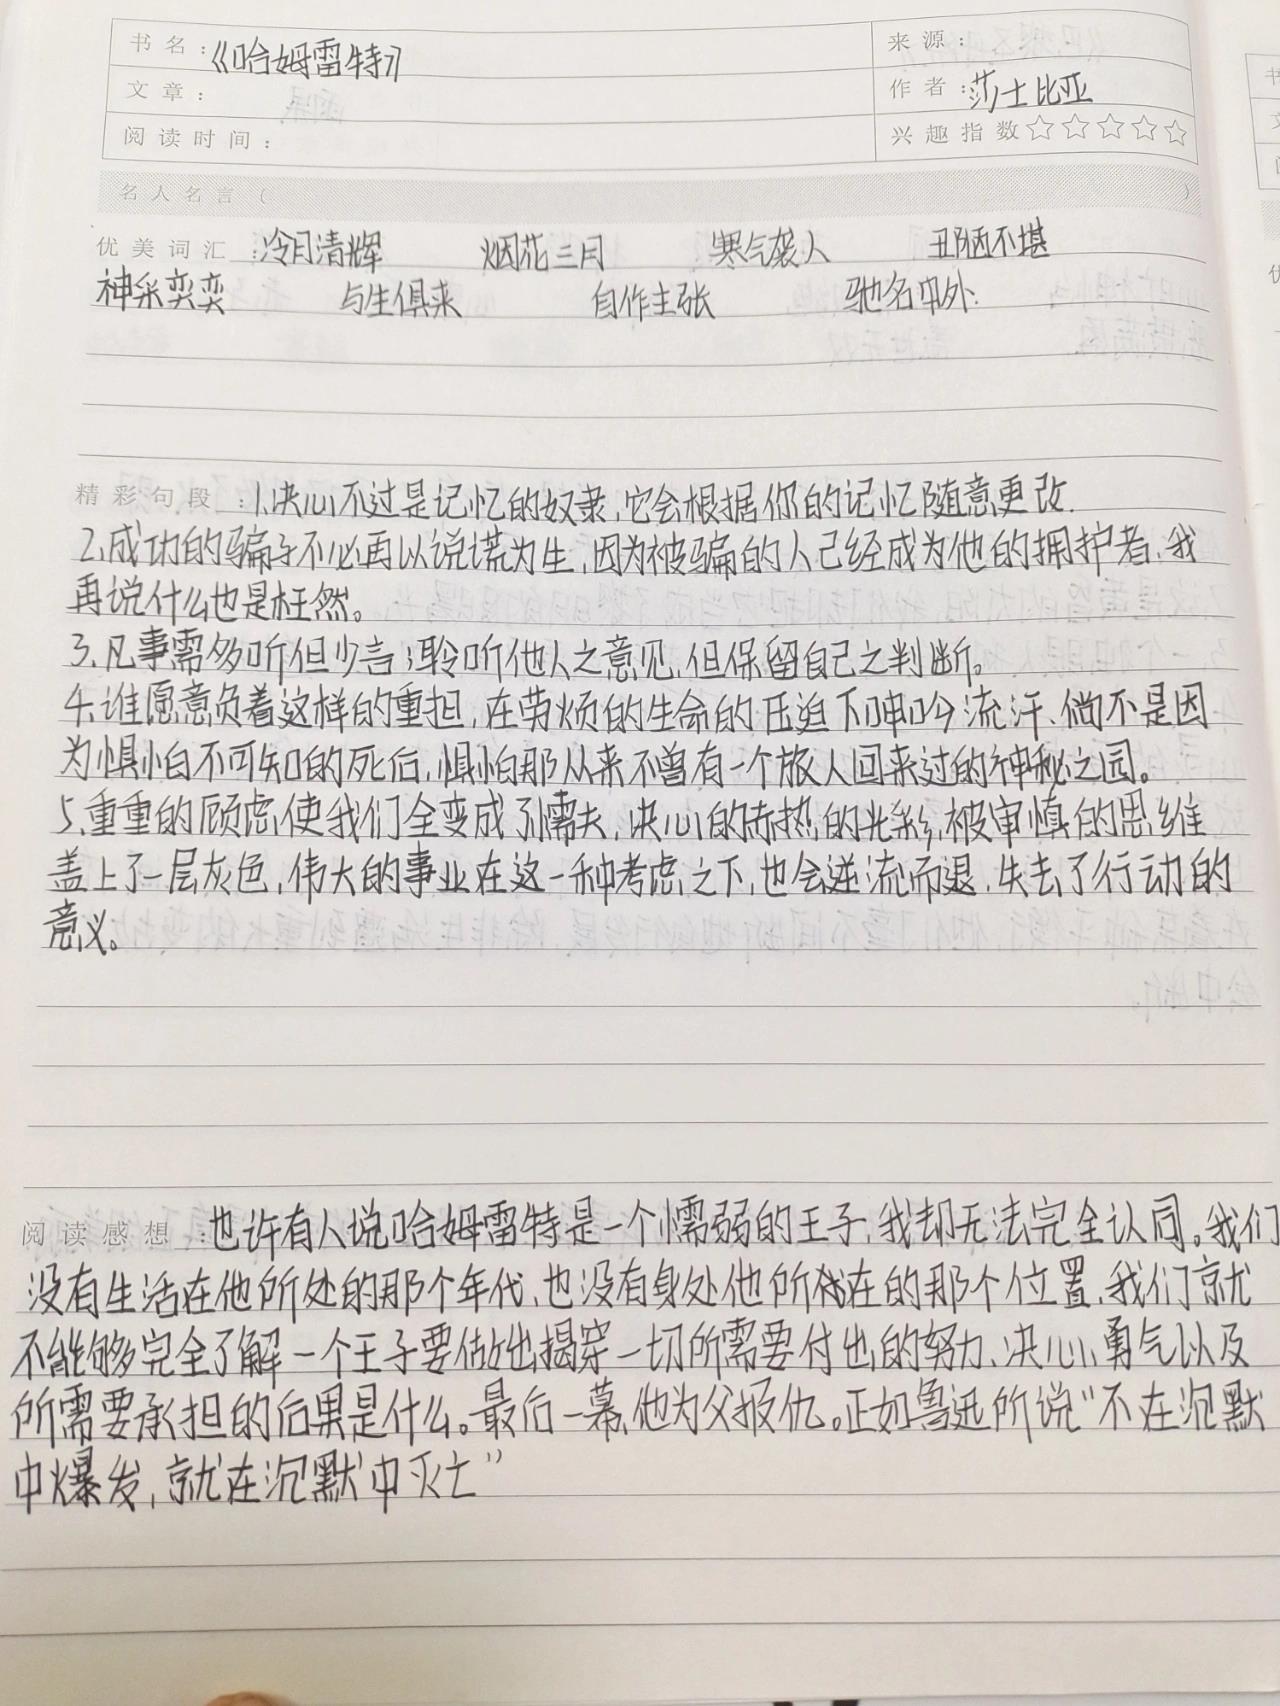 书名：《哈姆雷特》
来源：
文章：
作者：莎士比亚
阅读时间：
兴趣指数☆☆☆☆☆
名人名言（ ）
优美词汇：冷月清辉 烟花三月 寒气袭人 丑陋不堪
神采奕奕 与生俱来 自作主张 驰名中外.
精彩句段：1.决心不过是记忆的奴隶,它会根据你的记忆随意更改.
2.成功的骗子不必再以说谎为生,因为被骗的人已经成为他的拥护者,我
再说什么也是枉然。
3.凡事需多听但少言;聆听他人之意见,但保留自己之判断。
4.谁愿意负着这样的重担,在劳烦的生命的压迫下呻吟流汗、倘不是因
为惧怕不可知的死后,惧怕那从来不曾有一个旅人回来过的神秘之园。
5.重重的顾虑使我们全变成了懦夫,决心的赤热的光彩,被审慎的思维
盖上了一层灰色,伟大的事业在这一种考虑之下,也会逆流而退,失去了行动的
意义。
阅读感想：也许有人说哈姆雷特是一个懦弱的王子,我却无法完全认同。我们
没有生活在他所处的那个年代,也没有身处他所在的那个位置,我们就
不能够完全了解一个王子要做出揭穿一切所需要付出的努力、决心、勇气以及
所需要承担的后果是什么。最后一幕,他为父报仇。正如鲁迅所说“不在沉默
中爆发,就在沉默中灭亡”